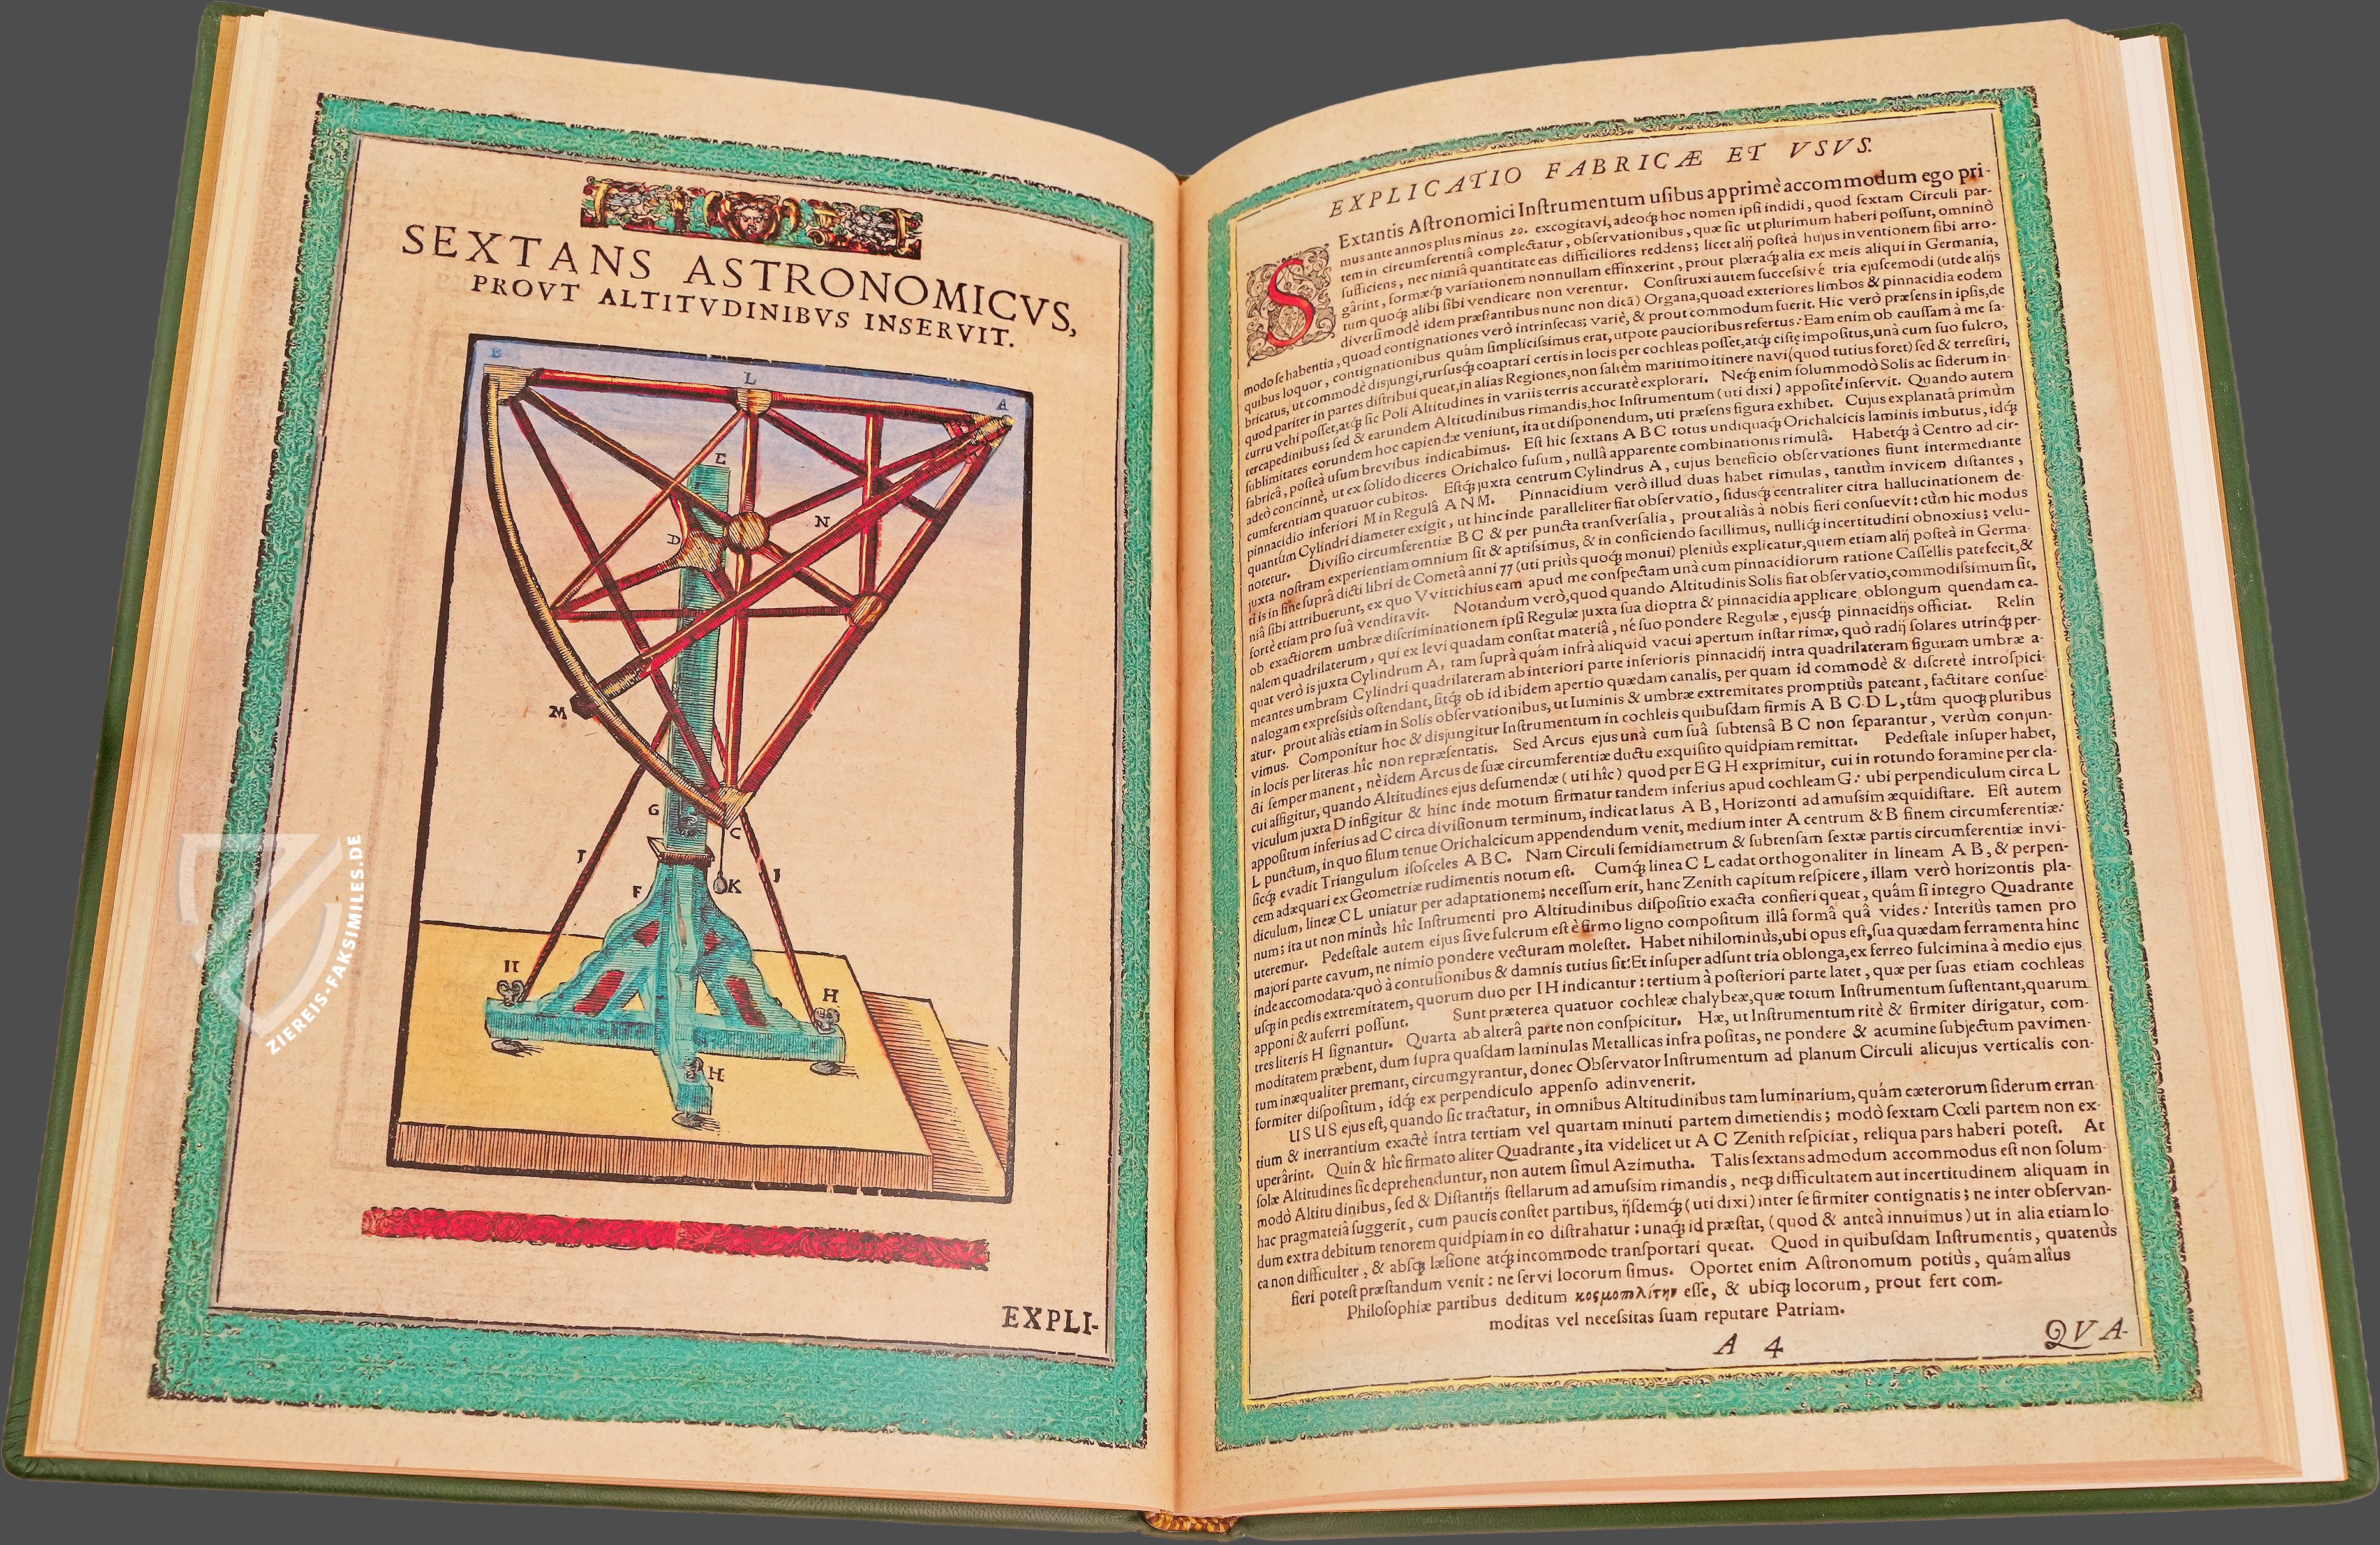 SEXTANS ASTRONOMICVS,
PROVT ALTITVDINIBVS INSERVIT.
B
L
A
E
N
D
M
G
C
I
I
F
K
H
H
H
EXPLI-
EXPLICATIO FABRICÆ ET VSVS.
SExtantis Aſtronomici Inſtrumentum uſibus apprimè accommodum ego pri-
mus ante annos plus minus 20. excogitavi, adeoq́; hoc nomen ipſi indidi, quod ſextam Circuli par-
tem in circumferentiâ complectatur, obſervationibus, quæ ſic ut plurimum haberi poſſunt, omninò
ſufficiens, nec nimiâ quantitate eas difficiliores reddens; licet alij poſteà hujus inventionem ſibi arro-
gârint, formæq́; variationem nonnullam effinxerint, prout plæraq́; alia ex meis aliqui in Germania,
tum quoq́; alibi ſibi vendicare non verentur. Conſtruxi autem ſucceſsivè tria ejuſcemodi (ut de alijs
diverſimodè idem præſtantibus nunc non dicā) Organa, quoad exteriores limbos & pinnacidia eodem
modo ſe habentia, quoad contignationes verò intrinſecas; variè, & prout commodum fuerit. Hic verò præſens in ipſis, de
quibus loquor, contignationibus quàm ſimpliciſsimus erat, utpote paucioribus refertus: Eam enim ob cauſſam à me fa-
bricatus, ut commodè disjungi, rurſusq́; coaptari certis in locis per cochleas poſſet, atq́; ciſtę impoſitus, unà cum ſuo fulcro,
quod pariter in partes diſtribui queat, in alias Regiones, non ſaltèm maritimo itinere navi (quod tutius foret) ſed & terreſtri,
curru vehi poſſet, atq́; ſic Poli Altitudines in variis terris accuratè explorari. Neq́; enim ſolummodò Solis ac ſiderum in-
tercapedinibus; ſed & earundem Altitudinibus rimandis, hoc Inſtrumentum (uti dixi) appoſitè inſervit. Quando autem
ſublimitates eorundem hoc capiendæ veniunt, ita ut diſponendum, uti præſens figura exhibet. Cujus explanatâ primùm
fabricâ, poſteà uſum brevibus indicabimus. Eſt hic ſextans A B C totus undiquaq́; Orichalcicis laminis imbutus, idq́;
adeò concinnè, ut ex ſolido diceres Orichalco fuſum, nullâ apparente combinationis rimulâ. Habetq́; à Centro ad cir-
cumferentiam quatuor cubitos. Eſtq́; juxta centrum Cylindrus A, cujus beneficio obſervationes fiunt intermediante
pinnacidio inferiori M in Regulâ A N M. Pinnacidium verò illud duas habet rimulas, tantùm invicem diſtantes,
quantùm Cylindri diameter exigit, ut hinc inde paralleliter fiat obſervatio, ſidusq́; centraliter citra hallucinationem de-
notetur. Diviſio circumferentiæ B C & per puncta tranſverſalia, prout aliàs à nobis fieri conſuevit: cùm hic modus
juxta noſtram experientiam omnium ſit & aptiſsimus, & in conficiendo facillimus, nulliq́; incertitudini obnoxius; velu-
ti is in fine ſuprà dicti libri de Cometâ anni 77 (uti priùs quoq́; monui) pleniùs explicatur, quem etiam alij poſteà in Germa-
niâ ſibi attribuerunt, ex quo Vvittichius eam apud me conſpectam unà cum pinnacidiorum ratione Caſſellis patefecit, &
fortè etiam pro ſuâ venditavit. Notandum verò, quod quando Altitudinis Solis fiat obſervatio, commodiſsimum ſit,
ob exactiorem umbræ diſcriminationem ipſi Regulæ juxta ſua dioptra & pinnacidia applicare oblongum quendam ca-
nalem quadrilaterum, qui ex levi quadam conſtat materiâ, nè ſuo pondere Regulæ, ejusq́; pinnacidijs officiat. Relin
quat verò is juxta Cylindrum A, tam ſuprà quàm infrà aliquid vacui apertum inſtar rimæ, quò radij ſolares utrinq́; per-
meantes umbram Cylindri quadrilateram ab interiori parte inferioris pinnacidij intra quadrilateram figuram umbræ a-
nalogam expreſsiùs oſtendant, ſitq́; ob id ibidem apertio quædam canalis, per quam id commodè & diſcretè introſpici-
atur. prout aliàs etiam in Solis obſervationibus, ut luminis & umbræ extremitates promptiùs pateant, factitare conſue
vimus. Componitur hoc & disjungitur Inſtrumentum in cochleis quibuſdam firmis A B C D L, tùm quoq́; pluribus
in locis per literas hîc non repræſentatis. Sed Arcus ejus unà cum ſuâ ſubtensâ B C non ſeparantur, verùm conjun-
cti ſemper manent, nè idem Arcus de ſuæ circumferentiæ ductu exquiſito quidpiam remittat. Pedeſtale inſuper habet,
cui affigitur, quando Altitudines ejus deſumendæ (uti hîc) quod per E G H exprimitur, cui in rotundo foramine per cla-
viculum juxta D infigitur & hinc inde motum firmatur tandem inferius apud cochleam G: ubi perpendiculum circa L
appoſitum inferius ad C circa diviſionum terminum, indicat latus A B, Horizonti ad amuſsim æquidiſtare. Eſt autem
L punctum, in quo filum tenue Orichalcicum appendendum venit, medium inter A centrum & B finem circumferentiæ:
ſicq́; evadit Triangulum iſoſceles A B C. Nam Circuli ſemidiametrum & ſubtenſam ſextæ partis circumferentiæ invi-
cem adæquari ex Geometriæ rudimentis notum eſt. Cumq́; linea C L cadat orthogonaliter in lineam A B, & perpen-
diculum, lineæ C L uniatur per adaptationem; neceſſum erit, hanc Zenith capitum reſpicere, illam verò horizontis pla-
num; ita ut non minùs hîc Inſtrumenti pro Altitudinibus diſpoſitio exacta confieri queat, quàm ſi integro Quadrante
uteremur. Pedeſtale autem eijus ſive fulcrum eſt è firmo ligno compoſitum illâ formâ quâ vides: Interiùs tamen pro
majori parte cavum, ne nimio pondere vecturam moleſtet. Habet nihilominùs, ubi opus eſt, ſua quædam ferramenta hinc
inde accomodata: quò à contuſionibus & damnis tutius ſit: Et inſuper adſunt tria oblonga, ex ferreo fulcimina à medio ejus
uſq́; in pedis extremitatem, quorum duo per I H indicantur: tertium à poſteriori parte latet, quæ per ſuas etiam cochleas
apponi & auferri poſſunt. Sunt præterea quatuor cochleæ chalybeæ, quæ totum Inſtrumentum ſuſtentant, quarum
tres literis H ſignantur. Quarta ab alterâ parte non conſpicitur. Hæ, ut Inſtrumentum ritè & firmiter dirigatur, com-
moditatem præbent, dum ſupra quaſdam laminulas Metallicas infra poſitas, ne pondere & acumine ſubjectum pavimen-
tum inæqualiter premant, circumgyrantur, donec Obſervator Inſtrumentum ad planum Circuli alicujus verticalis con-
formiter diſpoſitum, idq́; ex perpendiculo appenſo adinvenerit.
USUS ejus eſt, quando ſic tractatur, in omnibus Altitudinibus tam luminarium, quám cæterorum ſiderum erran-
tium & inerrantium exactè intra tertiam vel quartam minuti partem dimetiendis; modò ſextam Cœli partem non ex-
uperârint. Quin & hîc firmato aliter Quadrante, ita videlicet ut A C Zenith reſpiciat, reliqua pars haberi poteſt. At
ſolæ Altitudines ſic deprehenduntur, non autem ſimul Azimutha. Talis ſextans admodum accommodus eſt non ſolum-
modò Altitudinibus, ſed & Diſtantijs ſtellarum ad amuſsim rimandis, neq́; difficultatem aut incertitudinem aliquam in
hac pragmateiâ ſuggerit, cum paucis conſtet partibus, ijſdemq́; (uti dixi) inter ſe firmiter contignatis; ne inter obſervan-
dum extra debitum tenorem quidpiam in eo diſtrahatur: unaq́; id præſtat, (quod & anteà innuimus) ut in alia etiam lo
ca non difficulter, & abſq́; læſione atq́; incommodo tranſportari queat. Quod in quibuſdam Inſtrumentis, quatenùs
fieri poteſt præſtandum venit: ne ſervi locorum ſimus. Oportet enim Aſtronomum potiùs, quám alîus
Philoſophiæ partibus deditum κοσμοπολίτην eſſe, & ubiq́; locorum, prout fert com-
moditas vel neceſsitas ſuam reputare Patriam.
A 4
QVA-
ZIEREIS-FAKSIMILES.DE